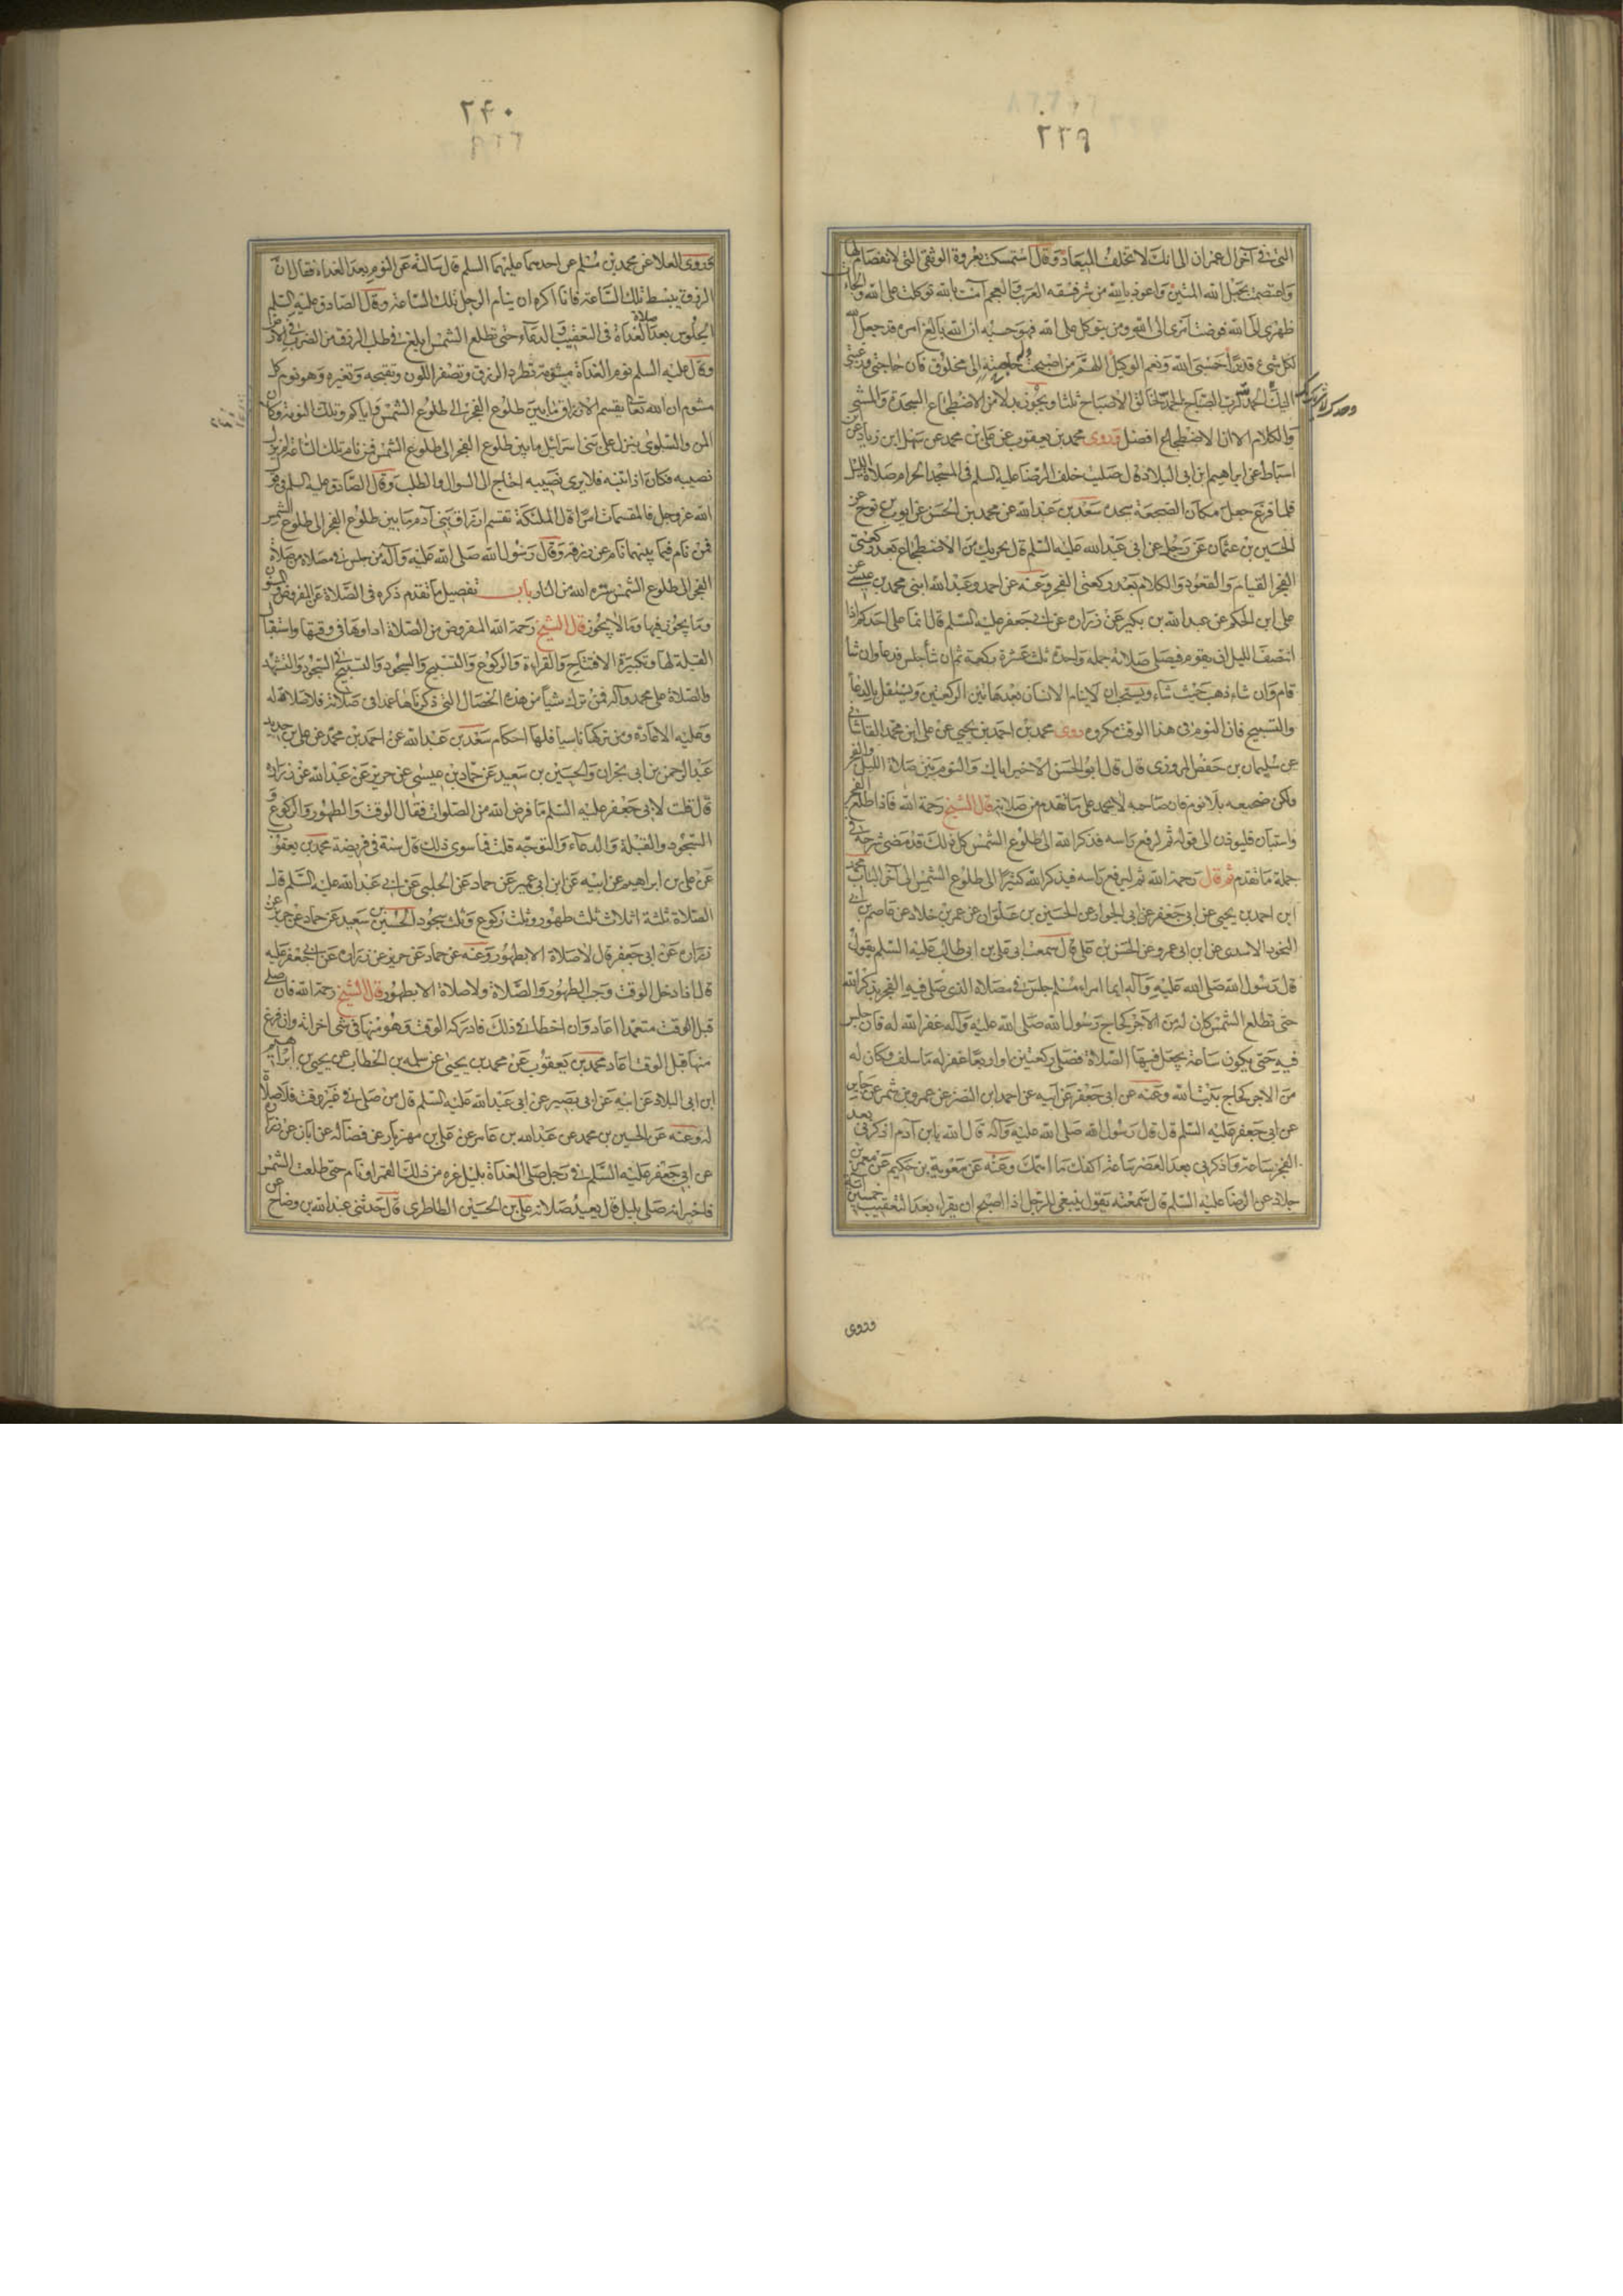 ٢٣٩
التى فى آخر آل عمران الى انك لا تخلف الميعاد وقال استمسكت بعروة الوثقى التى لا انفصام لها
واعتصمت بحبل الله المتين واعوذ بالله من شر فسقه العرب والعجم آمنت بالله توكلت على الله والجات
ظهرى الى الله فوضت امرى الى الله ومن يتوكل على الله فهو حسبه ان الله بالغ امره قد جعل الله
لكل شىء قدرا حسبى الله ونعم الوكيل اللهم من اصبحت حاجته الى مخلوق فان حاجتى ورغبتى
اليك الحمد لرب الصباح الحمد لخالق الاصباح ثلثا ويجوز بدلا من الاضطجاع السجدة والمشى
والكلام الا ان الاضطجاع افضل وروى محمد بن يعقوب عن على بن محمد عن سهل ابن زياد عن
اسباط عن ابراهيم ابن ابى البلاد قال صليت خلف الرضا عليه السلم فى المسجد الحرام صلاة الليل
فلما فرغ جعل مكان الضجعة سجده سعد بن عبد الله عن محمد بن الحسن عن ايوب بن نوح عن
الحسين بن عثمان عن رجل عن ابى عبد الله عليه السلم قال يجزيك من الاضطجاع بعد ركعتى
الفجر القيام والقعود والكلام بعد ركعتى الفجر وعنه عن احمد وعبد الله ابنى محمد بن عيسى عن
على ابن الحكم عن عبد الله بن بكير عن زراره عن ابى جعفر عليه السلم قال انما على احدكم اذا
انتصف الليل ان يقوم فيصلى صلاته جمله واحدة ثلث عشرة ركعة ثم ان شأ جلس فدعا وان شأ
قام وان شاء ذهب حيث شاء ويستحب ان لا ينام الانسان بعد هاتين الركعتين ويشتغل بالدعآ
والتسبيح فان النوم فى هذا الوقت مكروه روى محمد بن احمد بن يحيى عن على ابن محمد القاشانى
عن سليمان بن حفص المروزى قال قال ابو الحسن الاخير اياك والنوم بين صلاة الليل والفجر
ولكن ضجعه بلا نوم فان صاحبه لا يحمد على ما تقدم من صلاته قال الشيخ رحمة الله فاذا طلع الفجر
واستبان فليوذن الى قوله ثم ليرفع راسه فذكر الله الى طلوع الشمس كل ذلك قد مضى شرحه فى
جملة ما تقدم ثم قال رحمة الله ثم ليرفع راسه فيذكر الله كثيرا الى طلوع الشمس الى آخر الباب محمد
ابن احمد بن يحيى عن ابى جعفر عن ابى الجوزا عن الحسين بن علوان عن عمر بن خلاد عن عاصم بن ابى
النجود الاسدى عن ابن ابى عمر وعن الحسن بن على قال سمعت ابى على بن ابى طالب عليه السلم يقول
قال رسول الله صلى الله عليه وآله ايما امراء مسلم جلس فى مصلاه الذى صلى فيه الفجر يذكر الله
حتى تطلع الشمس كان له من الاجر كحاج رسول الله صلى الله عليه وآله غفر الله له فان جلس
فيه حتى يكون ساعة يحل فيها الصلاة فصلى ركعتين او اربعا غفر له ما سلف وكان له
من الاجر كحاج بيت الله وعنه عن ابى جعفر عن ابيه عن احمد ابن النضر عن عمرو بن شمر عن جابر
عن ابى جعفر عليه السلم قال قال رسول الله صلى الله عليه وآله قال الله يا بن آدم اذكرنى بعد
الفجر ساعة واذكرنى بعد العصر ساعة اكفك ما اهمك وعنه عن معوية بن حكيم عن معمر بن
خلاد عن الرضا عليه السلم قال سمعته يقول ينبغى للرجل اذا اصبح ان يقراء بعد التعقيب خمسين آية
وروى
٢۴٠
وروى العلا عن محمد بن مسلم عن احدهما عليهما السلم قال سالته عن النوم بعد الغداه فقال ان
الرزق يبسط تلك الساعة فانا اكره ان ينام الرجل تلك الساعة وقال الصادق عليه السلم
الجلوس بعد صلاة الغداة فى التعقيب والدعآء حتى تطلع الشمس ابلغ فى طلب الرزق من الضرب فى الارض
وقال عليه السلم نوم الغداة مشومة تطرد الرزق وتصفر اللون وتقبحه وتغيره وهو نوم كل
مشوم ان الله تعالى يقسم الارزاق ما بين طلوع الفجر الى طلوع الشمس واياكم وتلك النومة وكان
المن والسلوى ينزل على بنى اسرائيل ما بين طلوع الفجر الى طلوع الشمس فمن نام تلك الساعة لم ينزل
نصيبه فكان اذا انتبه فلا يرى نصيبه احتاج الى السوال والطلب وقال الصادق عليه السلم فى قول
الله عز وجل فالمقسمات امرا قال الملئكة تقسم ارزاق بنى آدم ما بين طلوع الفجر الى طلوع الشمس
فمن نام فيما بينهما نام عن رزقه وقال رسول الله صلى الله عليه وآله من جلس فى مصلاه من صلاة
الفجر الى طلوع الشمس ستره الله من النار باب تفصيل ما تقدم ذكره فى الصلاة من المفروض والمسنون
وما يجوز فيها وما لا يجوز قال الشيخ رحمة الله المفروض من الصلاة اداوها فى وقتها واستقبال
القبلة لها وتكبيرة الافتتاح والقراءة والركوع والتسبيح والسجود والتسبيح فى السجود والتشهد
والصلاة على محمد وآله فمن ترك شيأ من هذه الخصال التى ذكرناها عمدا فى صلاته فلا صلاة له
وعليه الاعادة ومن تركها ناسيا فلها احكام سعد بن عبد الله عن احمد بن محمد عن على بن حديد
عبد الرحمن بن ابى نجران والحسين بن سعيد عن حماد بن عيسى عن حريز عن عبد الله عن زراره
قال قلت لابى جعفر عليه السلم ما فرض الله من الصلوات فقال الوقت والطهور والركوع و
السجود والقبلة والدعآء والتوجه قلت فما سوى ذلك قال سنة فى فريضة محمد بن يعقوب
عن على بن ابراهيم عن ابيه عن ابن ابى عمير عن حماد عن الحلبى عن ابى عبد الله عليه السلم قال
الصلاة ثلثة اثلاث ثلث طهور وثلث ركوع وثلث سجود الحسين بن سعيد عن حماد عن حريز عن
زراره عن ابى جعفر قال لا صلاة الا بطهور وعنه عن حماد عن حريز عن زراره عن ابى جعفر عليه
قال اذا دخل الوقت وجب الطهور والصلاة ولا صلاة الا بطهور قال الشيخ رحمة الله فان صلى
قبل الوقت متعمدا اعاد وان اخطا فى ذلك فادركه الوقت وهو منها فى شى اجزاته وان فرغ
منها قبل الوقت اعاد محمد بن يعقوب عن محمد بن يحيى عن سلمه بن الخطاب عن يحيى بن ابراهيم
ابن ابى البلاد عن ابيه عن ابى بصير عن ابى عبد الله عليه السلم قال من صلى فى غير وقت فلا صلاة
له وعنه عن الحسين بن محمد عن عبد الله بن عامر عن على بن مهزيار عن فضاله عن ابان عن زراره
عن ابى جعفر عليه السلم فى رجل صلى الغداة بليل غره من ذلك القمر او نام حتى طلعت الشمس
فاخبر انه صلى بليل قال يعيد صلاته على بن الحسين الطاطرى قال حدثنى عبد الله بن وضاح عن